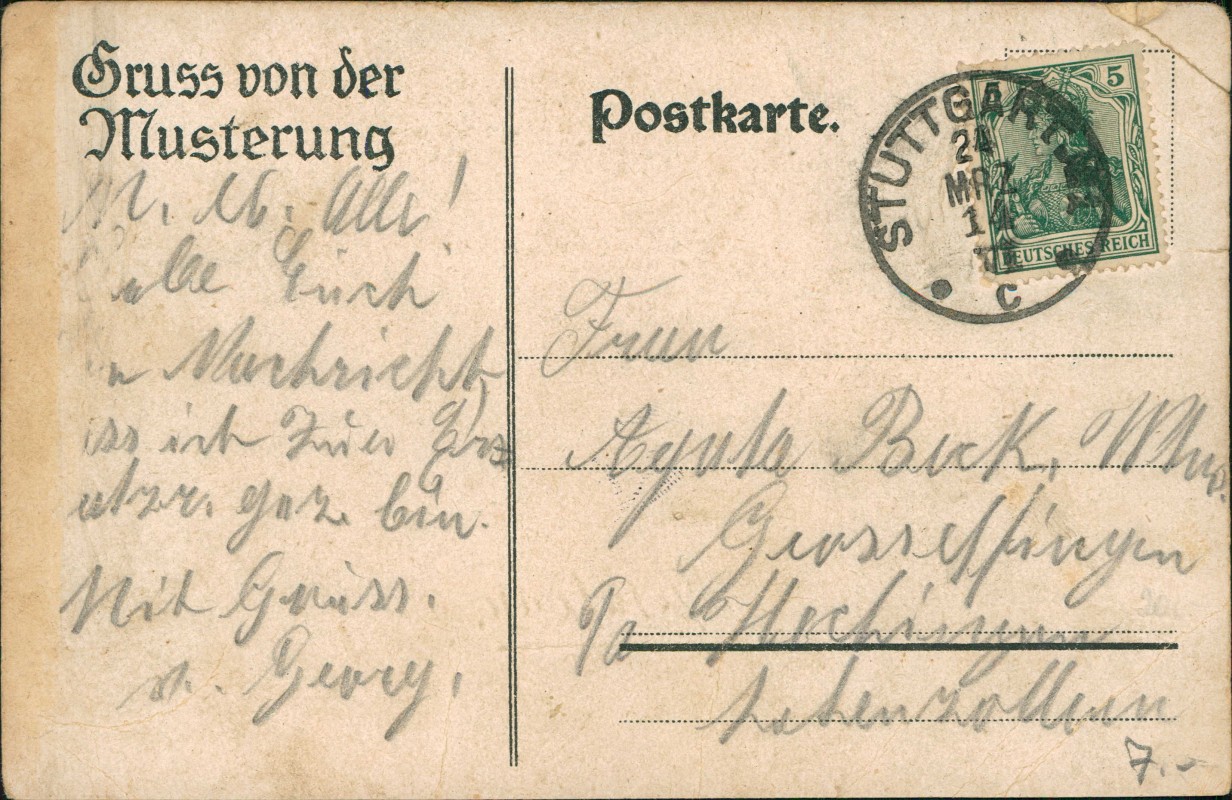 Gruss von der
Musterung
M. Lb. Alle!
Euch
Nachricht,
ich zur Ers
atzr. gez. bin.
Mit Gruss.
Georg.
Postkarte.
5
DEUTSCHES REICH
STUTTGART
24
MRZ
14
C
Frau
Agata Beck, Wtw.
Grosselfingen
Hechingen
Hohenzollern
7.-